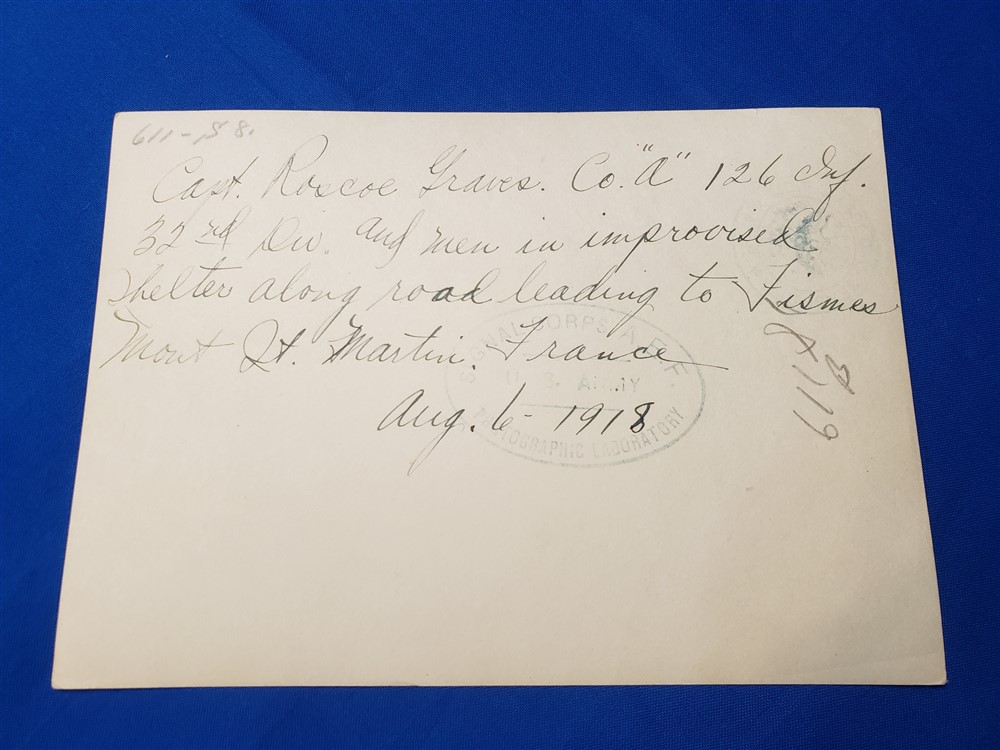 Capt. Roscoe Graves. Co. "A" 126 Inf.
32nd Div. and men in improvised
shelter along road leading to Fismes
Mont St. Martin. France
Aug. 6 - 1918
SIGNAL CORPS A.E.F.
U.S. ARMY
PHOTOGRAPHIC LABORATORY